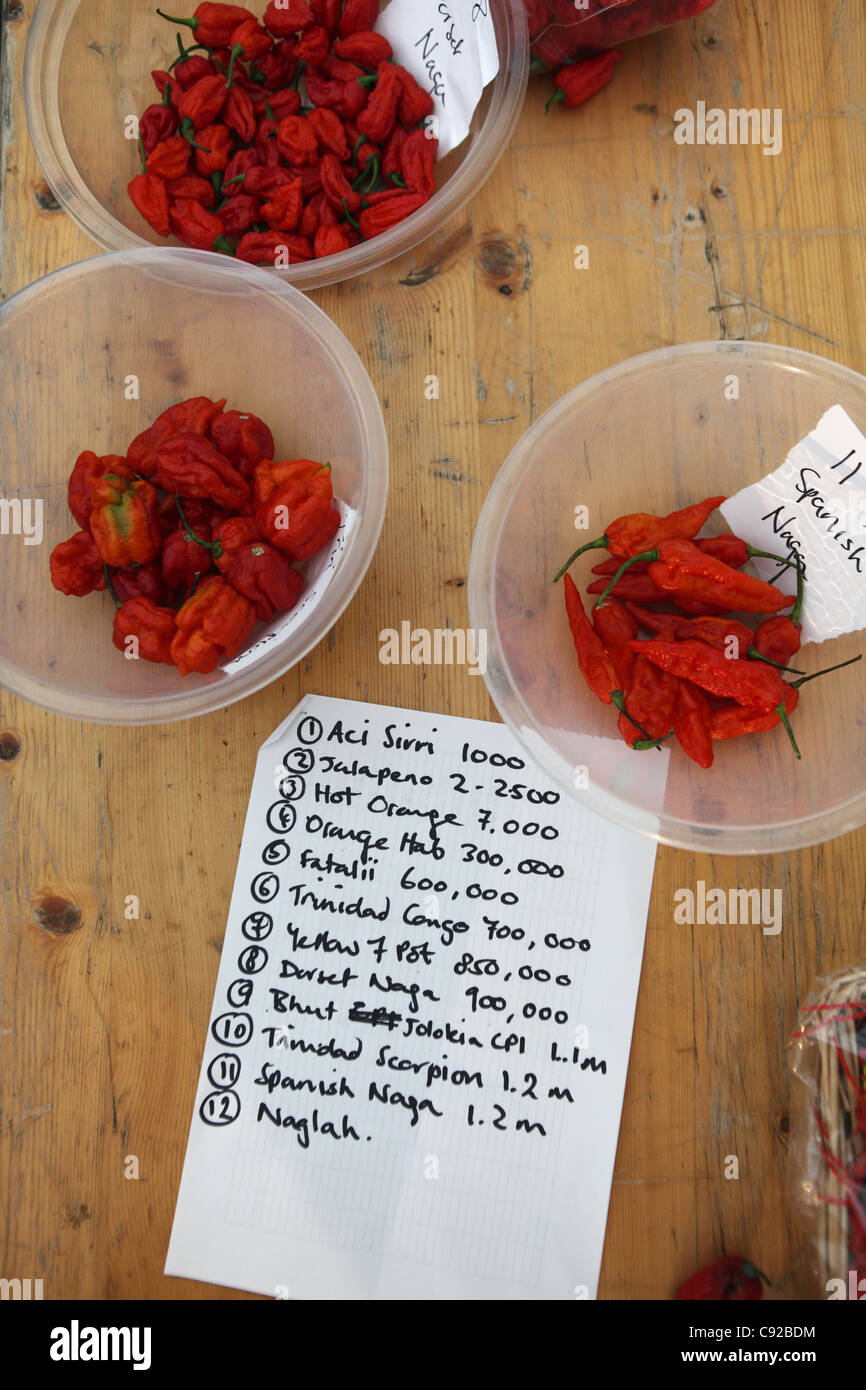 Naga
11
Spanish
Naga
① Aci Sirri 1000
② Jalapeno 2-2500
③ Hot Orange 7,000
④ Orange Hab 300,000
⑤ Fatalii 600,000
⑥ Trinidad Congo 700,000
⑦ Yellow 7 Pot 850,000
⑧ Dorset Naga 900,000
⑨ Bhut Jolokia CPI 1.1m
⑩ Trinidad Scorpion 1.2m
⑪ Spanish Naga 1.2m
⑫ Naglah.
alamy
Image ID: C92BDM
www.alamy.com